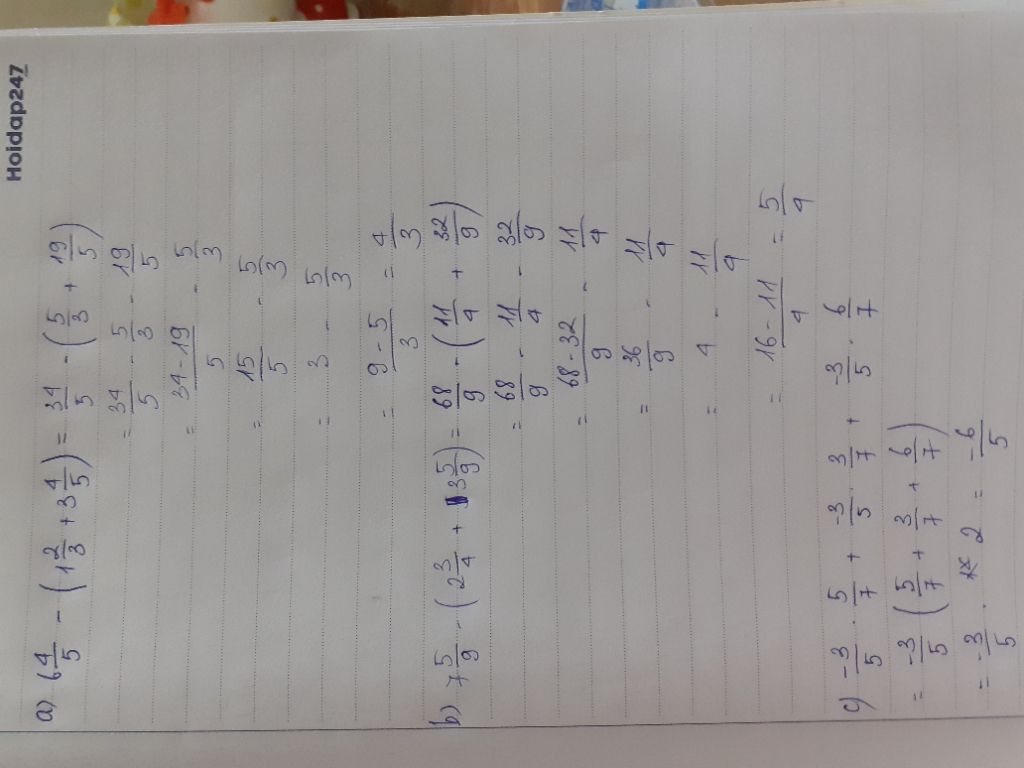 Hoidap247
a) 6 4/5 - (1 2/3 + 3 4/5) = 34/5 - (5/3 + 19/5)
= 34/5 - 5/3 - 19/5
= 34-19/5 - 5/3
= 15/5 - 5/3
= 3 - 5/3
= 9-5/3 = 4/3
b) 7 5/9 - (2 3/4 + 3 5/9) = 68/9 - (11/4 + 32/9)
= 68/9 - 11/4 - 32/9
= 68-32/9 - 11/4
= 36/9 - 11/4
= 4 - 11/4
= 16-11/4 = 5/4
c) -3/5 . 5/7 + -3/5 . 3/7 + -3/5 . 6/7
= -3/5 (5/7 + 3/7 + 6/7)
= -3/5 . 2 = -6/5